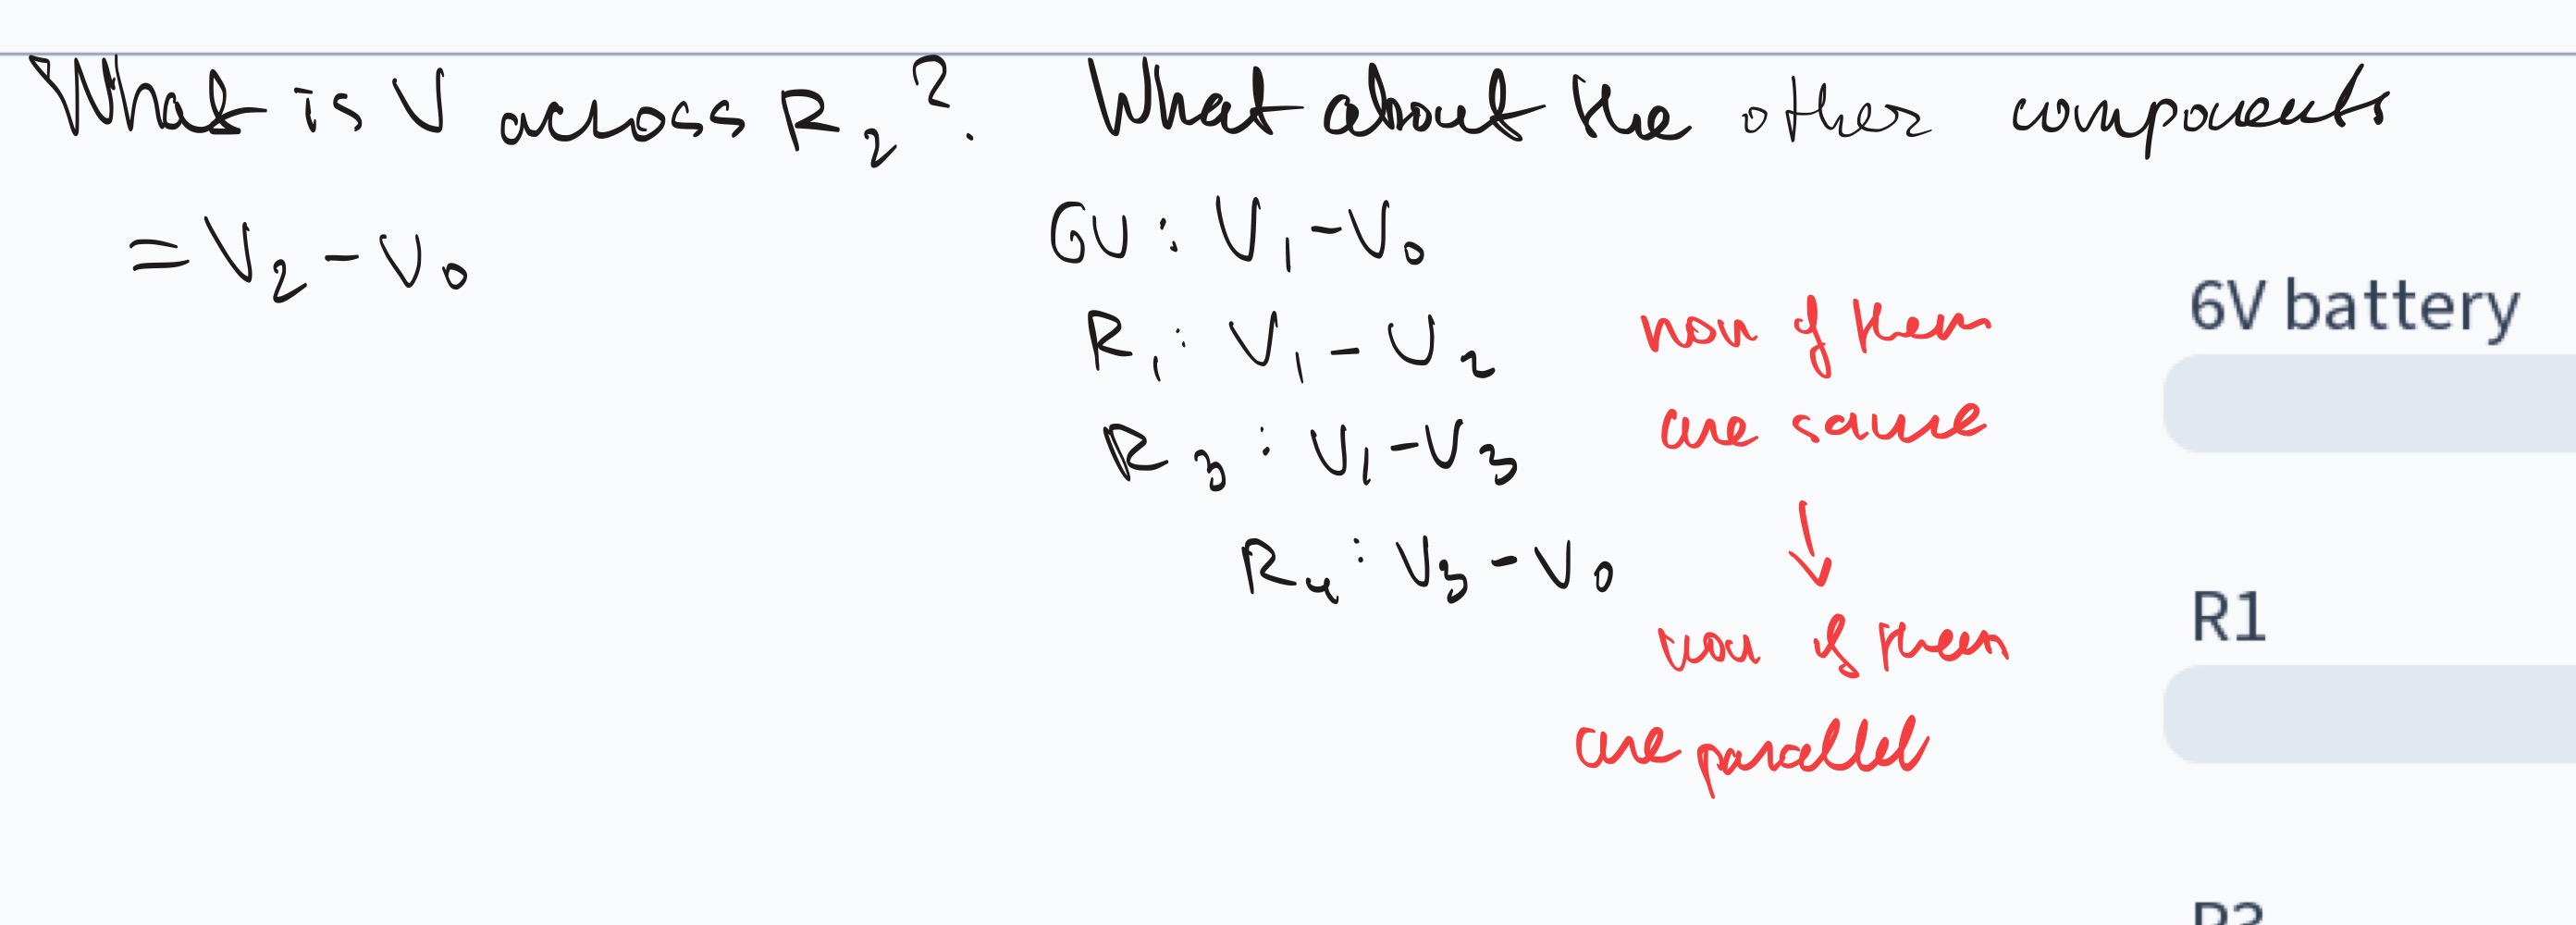 What is V across R2? What about the other components
= V2 - V0
6V : V1 - V0
R1 : V1 - V2
R3 : V1 - V3
R4 : V3 - V0
non of them
are same
↓
non of them
are parallel
6V battery
R1